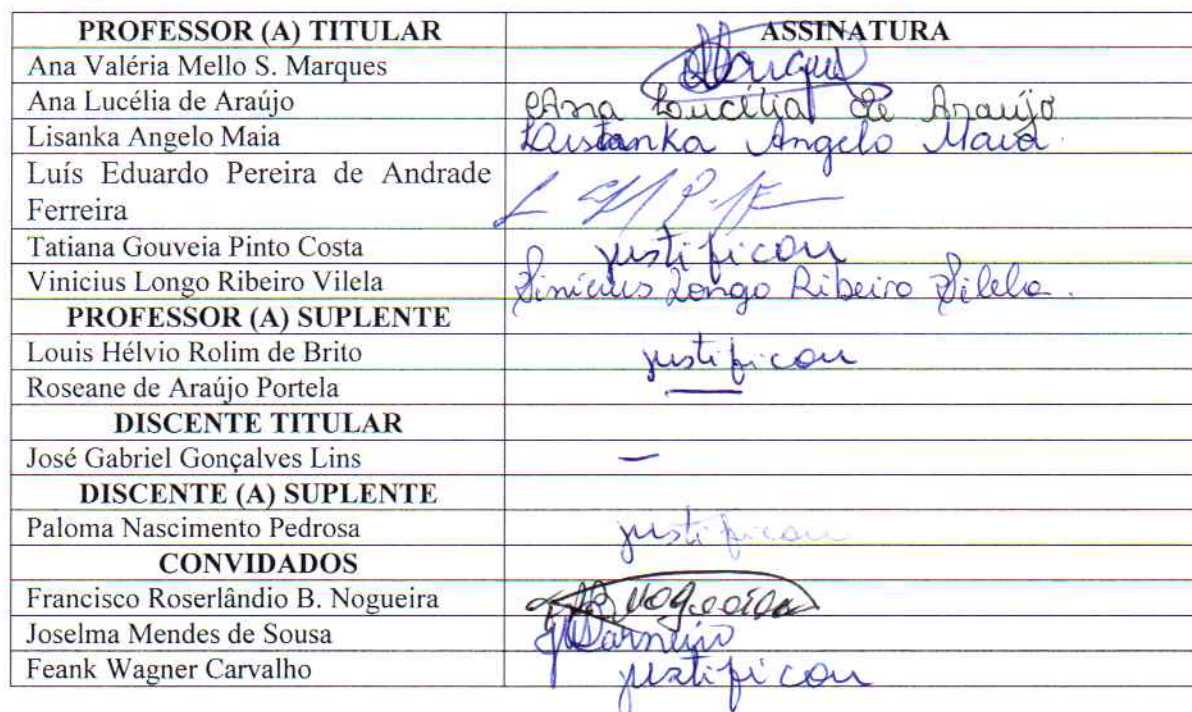 PROFESSOR (A) TITULAR ASSINATURA
Ana Valéria Mello S. Marques
Ana Lucélia de Araújo Ana Lucélia de Araújo
Lisanka Angelo Maia Angelo Maia.
Luís Eduardo Pereira de Andrade
Ferreira
Tatiana Gouveia Pinto Costa justificou
Vinicius Longo Ribeiro Vilela Vinicius Longo Ribeiro Vilela.
PROFESSOR (A) SUPLENTE
Louis Hélvio Rolim de Brito justificou
Roseane de Araújo Portela —
DISCENTE TITULAR
José Gabriel Gonçalves Lins —
DISCENTE (A) SUPLENTE
Paloma Nascimento Pedrosa justificou
CONVIDADOS
Francisco Roserlândio B. Nogueira Nogueira
Joselma Mendes de Sousa
Feank Wagner Carvalho justificou